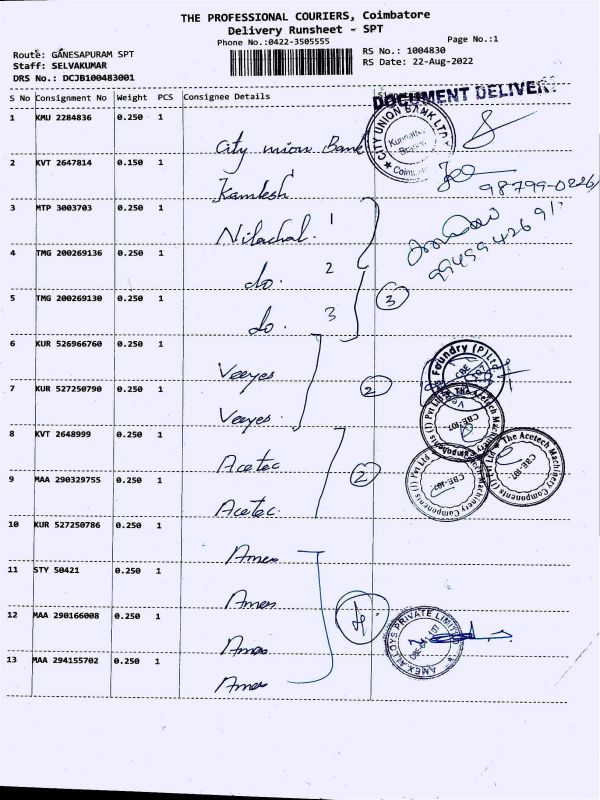 THE PROFESSIONAL COURIERS, Coimbatore
Delivery Runsheet - SPT
Phone No.:0422-3505555
Page No.:1
Route: GANESAPURAM SPT
Staff: SELVAKUMAR
DRS No.: DCJB100483001
RS No.: 1004830
RS Date: 22-Aug-2022
S No Consignment No Weight PCS Consignee Details
DOCUMENT DELIVER
1 KMU 2284836 0.250 1 City union Bank
CITY UNION BANK LTD
2 KVT 2647814 0.150 1 Kamlesh
98799-0226/
3 MTP 3003703 0.250 1 Nilachal. 1
4 TMG 200269136 0.250 1 do. 2
5 TMG 200269130 0.250 1 do. 3
3
6 KUR 526966760 0.250 1 Veeyes
Foundry (P) Ltd
CBE
7 KUR 527250790 0.250 1 Veeyes.
2
8 KVT 2648999 0.250 1 Acetec
The Acetech Machinery Components (I) Pvt Ltd
CBE-107.
9 MAA 290329755 0.250 1 Acetec.
2
10 KUR 527250786 0.250 1 Amex
11 STY 50421 0.250 1 Amex
12 MAA 290166008 0.250 1 Amex
4
AMEX ALLOYS PRIVATE LIMITED
13 MAA 294155702 0.250 1 Amex